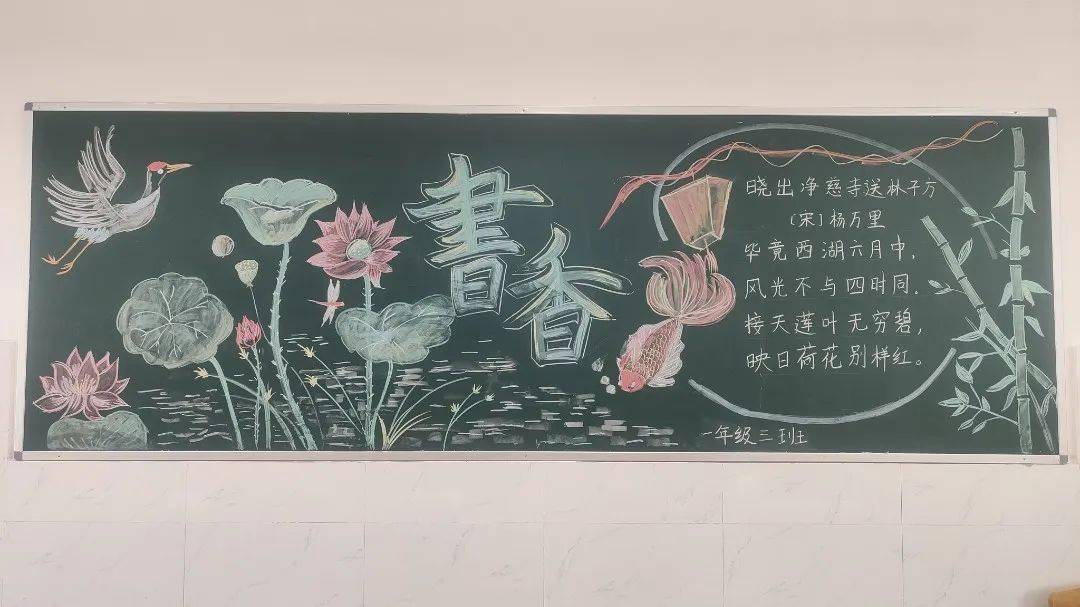 書香
晓出净慈寺送林子方
(宋)杨万里
毕竟西湖六月中,
风光不与四时同.
接天莲叶无穷碧,
映日荷花别样红。
一年级三班